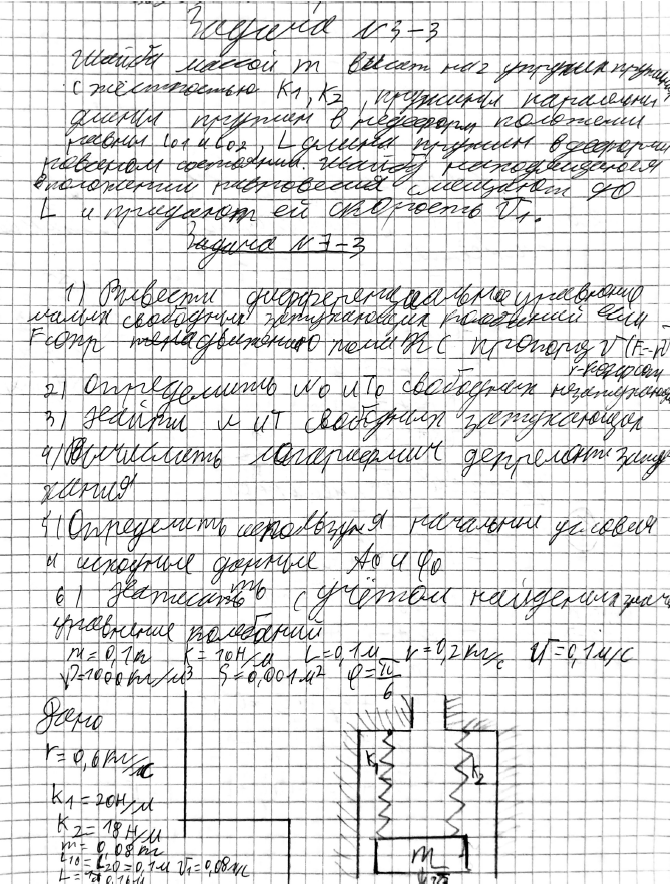 Задача N3-3
Шайба массой m висит на 2 упругих пружин
с жёсткостью K1, K2, пружины
длины пружин в недеформ положении
равны L01 и L02, L длина пружин в деформи
рованом состоянии. Шайбу находящаяся
в положении равновесия смещают до
L и придают ей скорость V1.
Задача N7-3
1) Вывести дифференциальное уравнение
малых свободных затухающих колебаний если
Fсопр движению пропорц V (F=-rV)
r-коэффи
2) Определить и T0 свободных незатухающ
3) Найти и T свободных затухающих
4) Вычислить логарифмич декремент зату
хания
5) Определить используя начальные условия
и исходные данные A0 и φ0
6) Записать с учётом найденных знач
уравнение колебаний
m=0,1кг K=10Н/м L=0,1м r=0,2кг/с V=0,1м/с
ρ=1000кг/м3 S=0,001м2 φ=π/6
Дано
r=0,6кг/с
K1=20Н/м
K2=18Н/м
m=0,08кг
L10=L20=0,1м V1=0,08м/с
K1
K2
m